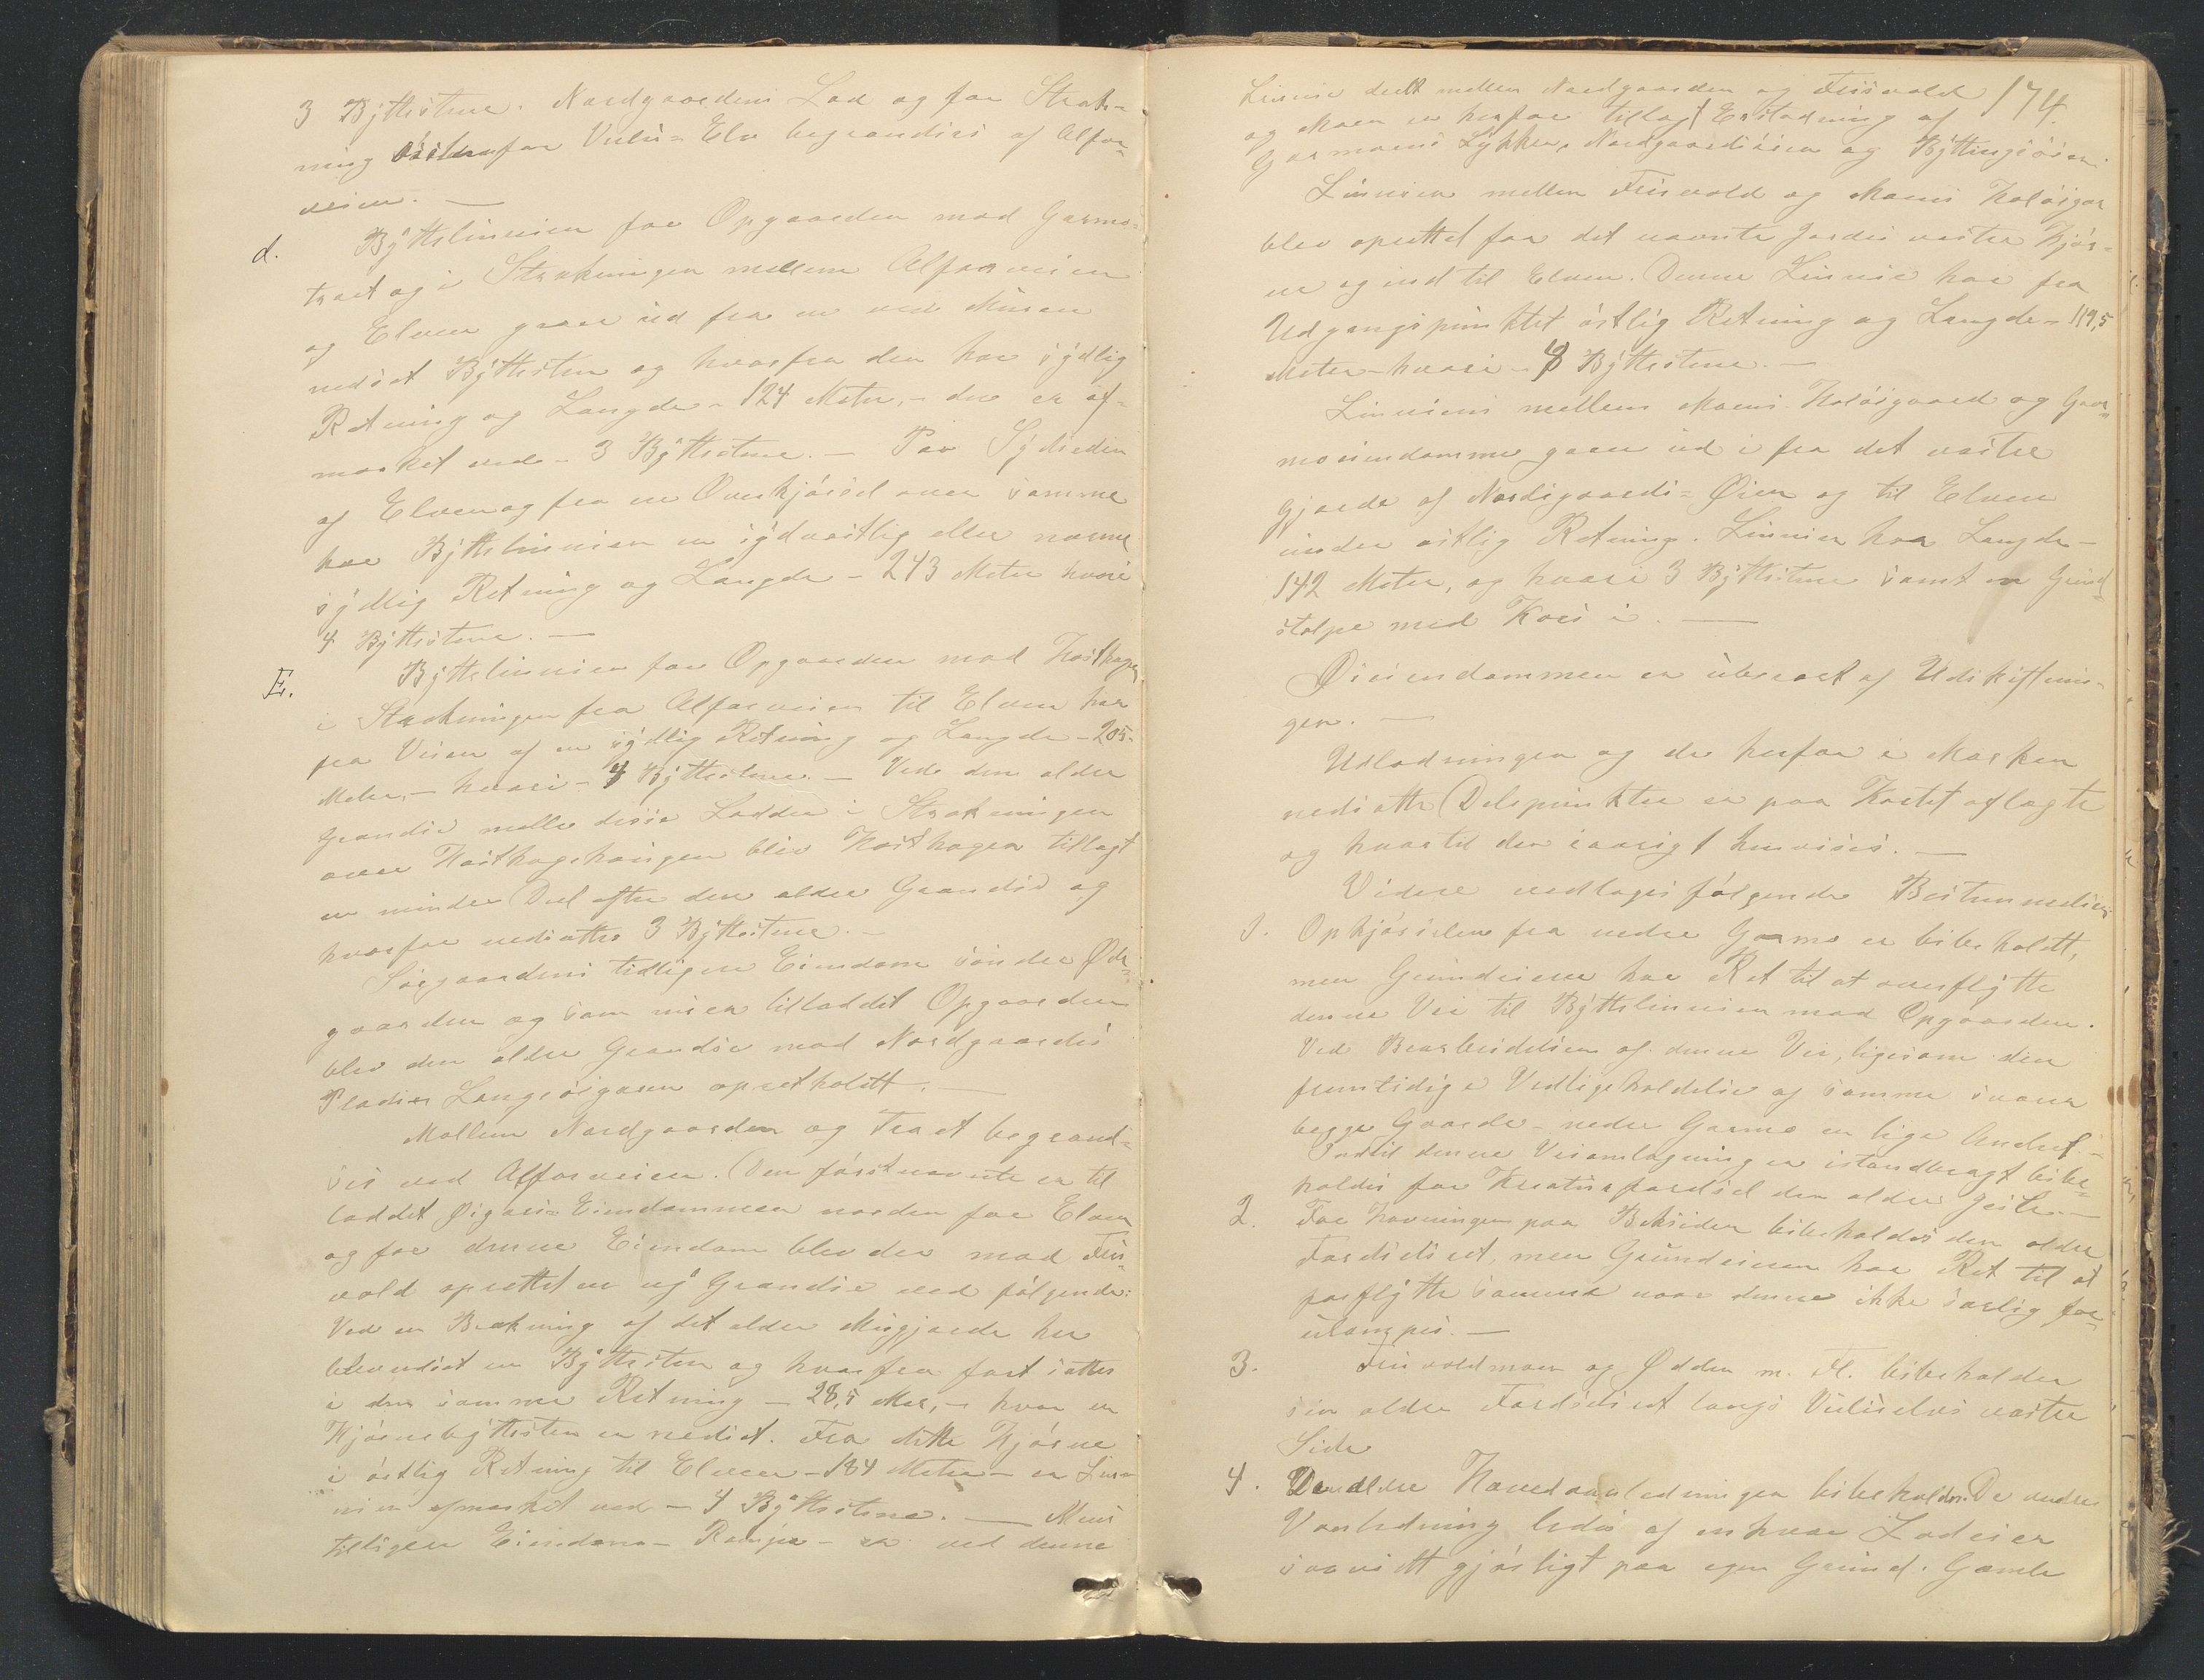 3 Byttestene. Nordgaardens Lod og for Stræk-
ning östenfor Vulu-Elv begrændses af Alfar-
veien. —
d. Byttelinnien for Opgaarden mod Garmo-
træet og i Strækningen mellem Alfarveien
og Elven gaaer ud fra en ved Muren
nedsat Byttesten og hvorfra den har sydlig
Retning og Længde – 124 Meter, – den er af-
mærket ved – 3 Byttestene. – Paa Sydsiden
af Elven og fra en Overkjörsel over samme
har Byttelinnien en sydvestlig eller nærme
sydlig Retning og Længde – 243 Meter hvori
4 Byttestene. —
E. Byttelinnien for Opgaarden mod Hesthagen
i Strækningen fra Alfarveien til Elven har
fra Veien af en sydlig Retning og Længde – 205
Meter, – hvori – 4 Byttestene. – Ved den ældre
Grændse melle disse Lodder i Strækningen
over Hesthagehaugen blev Hesthagen tillagt
en mindre Deel efter den ældre Grændse og
hvorfor nedsattes 3 Byttestene. –
Sörgaardens tidligere Eiendom söndre Öde-
gaarden og som nu er tilloddet Opgaarden
blev den ældre Grændse mod Nordgaardens
Pladser Langsöigaren opretholdt. —
Mellem Nordgaarden og Træet begrænd-
ses ved Alfarveien. Den förstnævnte er til
loddet Øigars-Eiendommen norden for Elven
og for denne Eiendom blev der mod Fris-
vold oprettet en ny Grændse ved fölgende:
Ved en Brækning af det ældre Misgjærde her
blev nedsat en Byttesten og hvorfra fortsættes
i den samme Retning – 28,5 Met, – hvor en
Hjörnebyttesten er nedsat. Fra dette Hjörne
i östlig Retning til Elven – 184 Meter – er Lin-
nien afmærket ved – 4 Byttestene. — Mens
tidligere Eiendom – – er ved denne
174.
Linnie deelt mellem Nordgaarden og Frisvold
og Moen er herfor tillagt Erstatning af
Garmoens Lykken, Nordgaardsöien og Byttingsöien.
Linnien mellem Frisvold og Moens Holöigar
blev oprettet fra det nævnte Jordes vestre Hjör-
ne og ind til Elven. Denne Linnie har fra
Udgangspunktet östlig Retning og Længde – 119,5
Meter – hvori – 3 Byttestene. –
Linniens mellem Moens Holöigaard og Gar-
moeiendomme gaaer ud i fra det vestre
Gjærde af Nordsgaards-Øien og til Elven
under östlig Retning. Linnien har Længde –
142 Meter, og hvori 3 Byttestene samt en Grind
stolpe med Kors i. —
Øieiendommen er uberørt af Udskiftnin-
gen. —
Udlodningen og de herfor i Marken
nedsatte Delepunkter er paa Kartet aflagte
og hvortil der iövrigt henvises. —
Videre vedtoges fölgende Bestemmelser
1. Opkjörselen fra nedre Garmo er bibeholdt,
men Grundeieren har Ret til at overflytte
denne Vei til Byttelinnien mod Opgaarden.
Ved Bearbeidelsen af denne Vei, ligesom den
fremtidige Vedligeholdelse af samme svarer
begge Gaarde – nedre Garmo en lige Andeel. –
Indtil denne Veiomlægning er istandbragt bibe-
holdes for Kreaturfærdsel den ældre Geile. –
2. For Havningen paa Baksiden bibeholdes den ældre
Færdselsret, men Grundeieren har Ret til at
forflytte samme naar denne ikke særlig for-
ulempes. –
3. Frisvoldmoen og Ödden m. Fl. bibeholder
sin ældre Færdselsret langs Vuluelvs vestre
Side
4. Den ældre Hovedvanledningen bibeholdes. De andre
Vanledning ledes af enhver Lodeier
saavidtt gjörligt paa egen Grund. Gamle